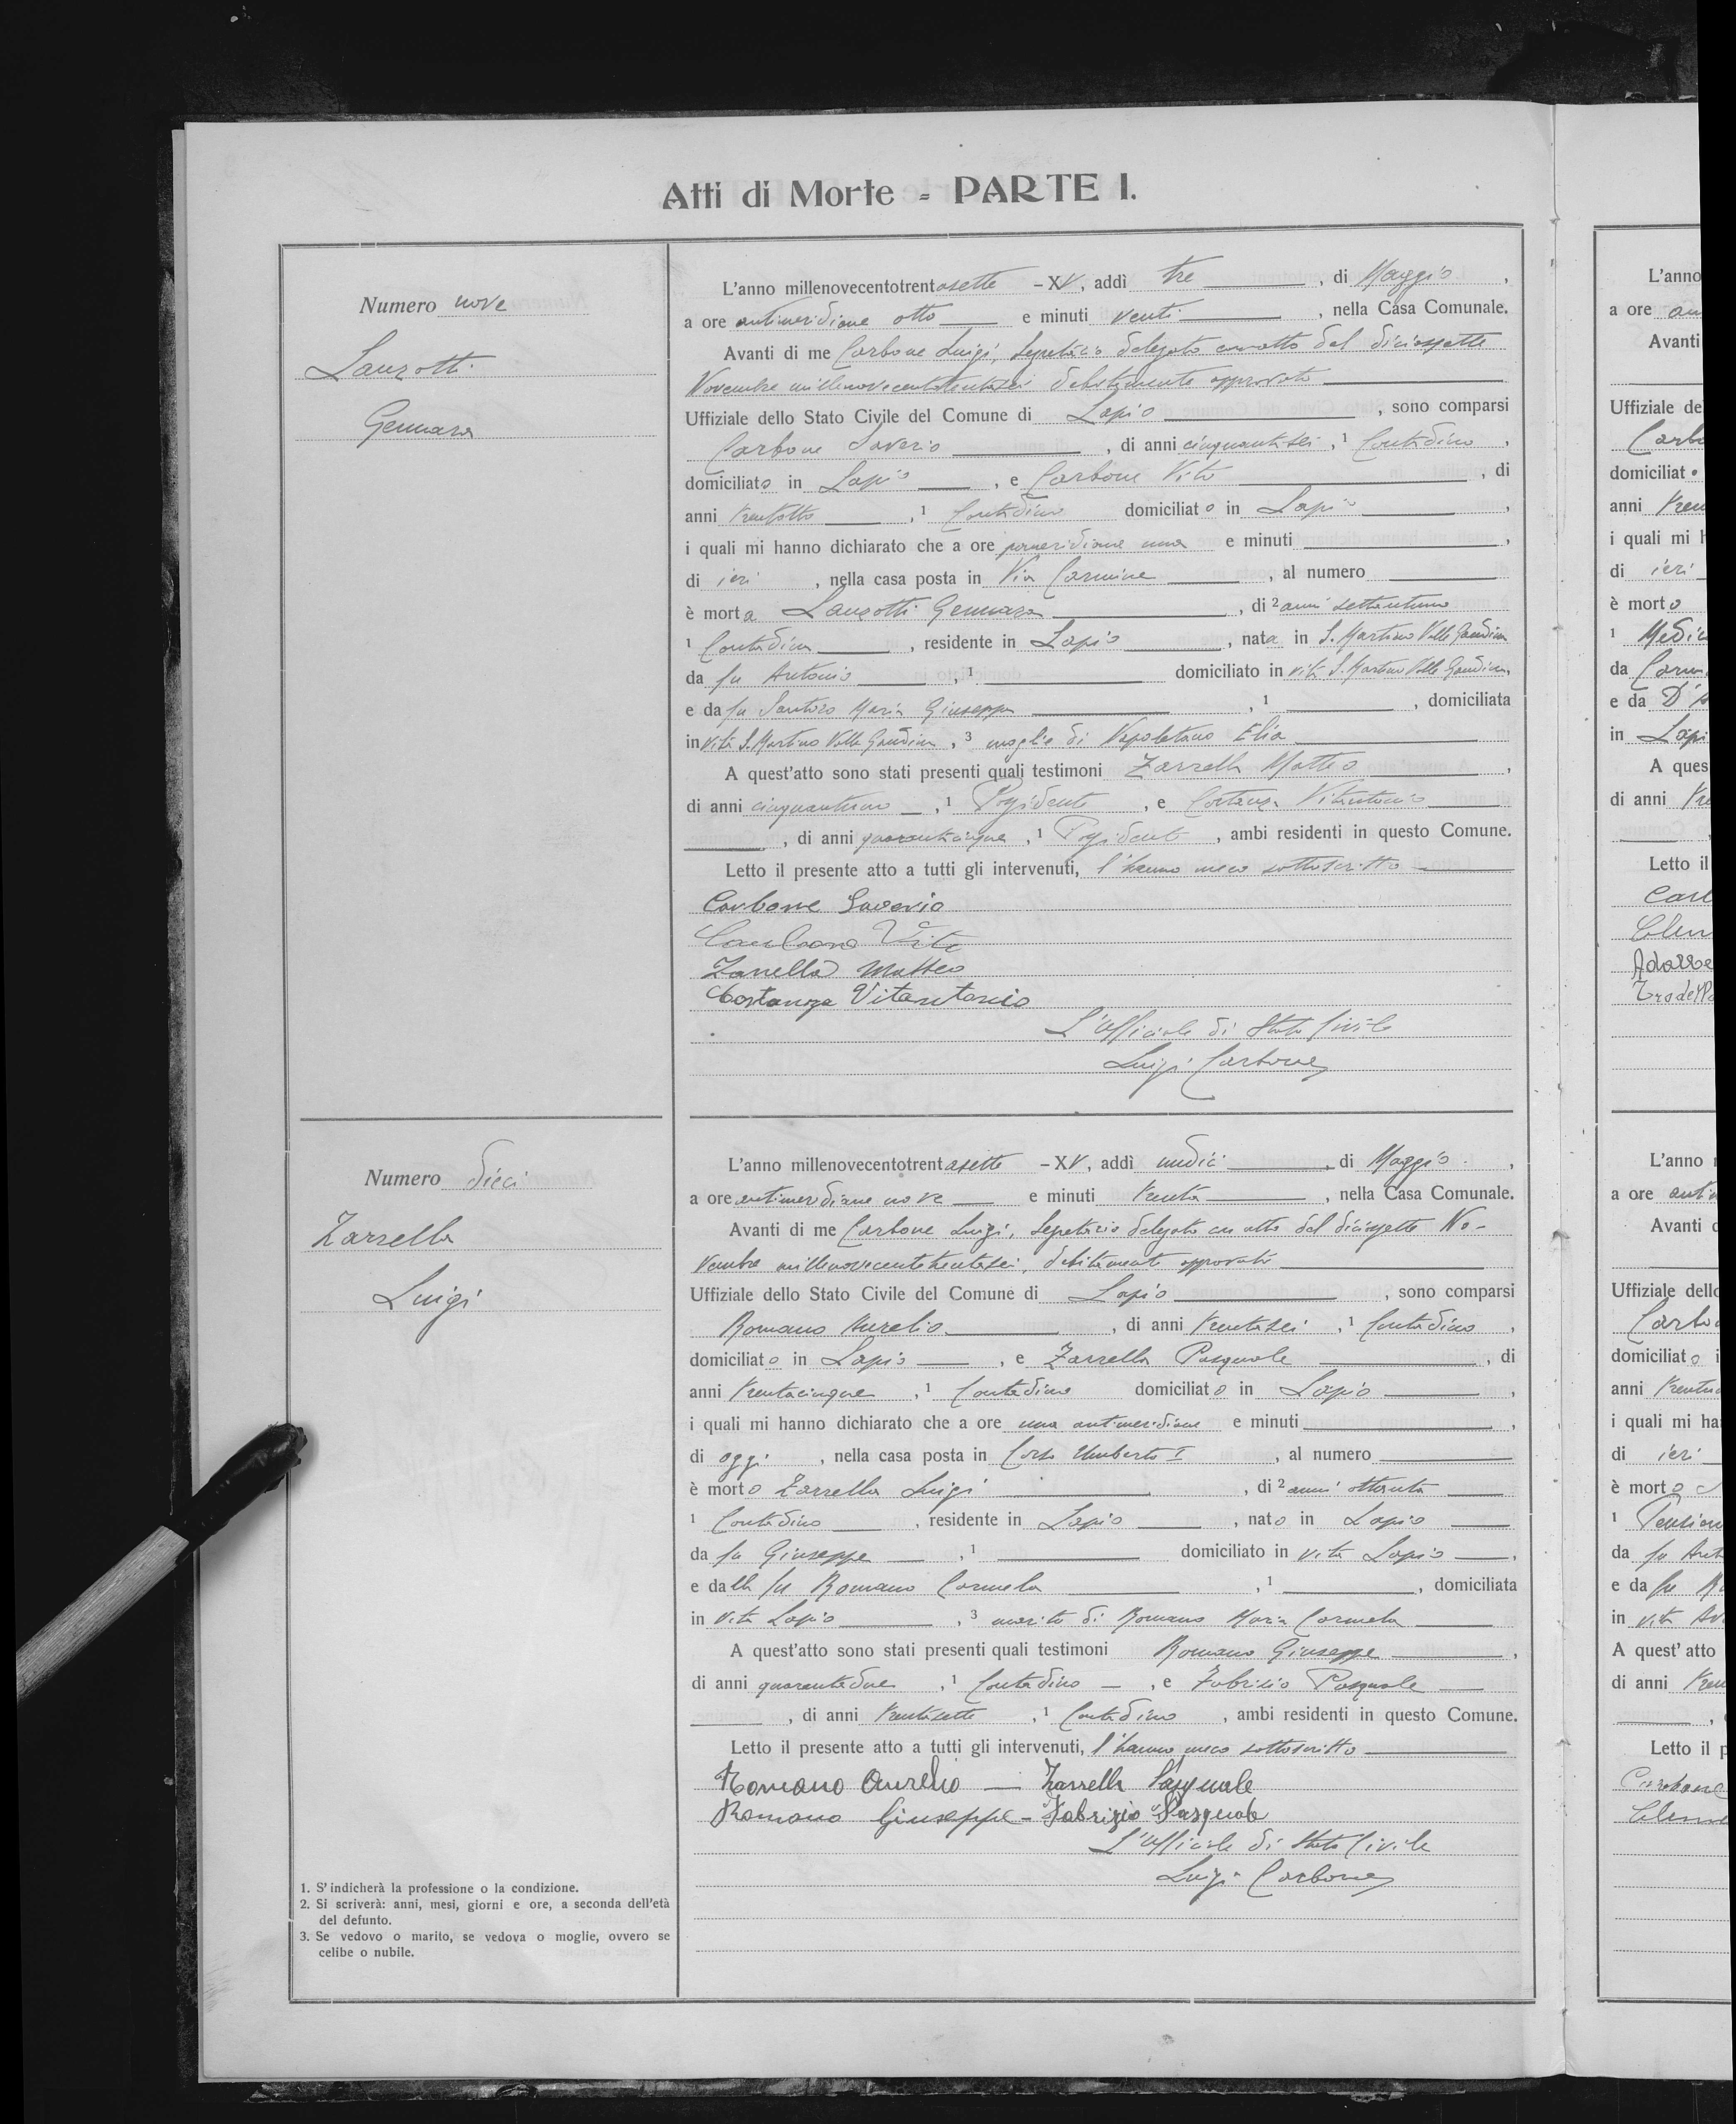 Atti di Morte - PARTE I.
Numero nove
Lanzotti
Gennara
L'anno millenovecentotrentasette - XV, addì tre, di Maggio,
a ore antimeridiane otto e minuti venti, nella Casa Comunale.
Avanti di me Carbone Luigi, Segretario delegato con atto del diciassette
Novembre millenovecentotrentasei debitamente approvato
Uffiziale dello Stato Civile del Comune di Lapio, sono comparsi
Carbone Saverio, di anni cinquantasei, 1 Contadino,
domiciliato in Lapio, e Carbone Vito, di
anni trentotto, 1 Contadino domiciliato in Lapio,
i quali mi hanno dichiarato che a ore pomeridiane una e minuti,
di ieri, nella casa posta in Via Carmine, al numero
è morta Lanzotti Gennara, di 2 anni settantuno
1 Contadina, residente in Lapio, nata in S. Martino Valle Caudina
da fu Antonio, 1 domiciliato in vita S. Martino Valle Caudina,
e da fu Santoro Maria Giuseppa, 1, domiciliata
in vita S. Martino Valle Caudina, 3 moglie di Napoletano Elia
A quest'atto sono stati presenti quali testimoni Zarrella Matteo,
di anni cinquantuno, 1 Possidente, e Costanza Vitantonio
, di anni quarantacinque, 1 Possidente, ambi residenti in questo Comune.
Letto il presente atto a tutti gli intervenuti, l'hanno meco sottoscritto
Carbone Saverio
Carbone Vito
Zarrella Matteo
Costanza Vitantonio
L'Ufficiale di Stato Civile
Luigi Carbone
Numero dieci
Zarrella
Luigi
L'anno millenovecentotrentasette - XV, addì undici, di Maggio,
a ore antimeridiane nove e minuti trenta, nella Casa Comunale.
Avanti di me Carbone Luigi, Segretario delegato con atto del diciassette No-
vembre millenovecentotrentasei, debitamente approvato
Uffiziale dello Stato Civile del Comune di Lapio, sono comparsi
Romano Aurelio, di anni trentasei, 1 Contadino,
domiciliato in Lapio, e Zarrella Pasquale, di
anni trentacinque, 1 Contadino domiciliato in Lapio,
i quali mi hanno dichiarato che a ore una antimeridiane e minuti,
di oggi, nella casa posta in Corso Umberto I, al numero
è morto Zarrella Luigi, di 2 anni ottanta
1 Contadino, residente in Lapio, nato in Lapio
da fu Giuseppe, 1 domiciliato in vita Lapio,
e dalla fu Romano Carmela, 1, domiciliata
in vita Lapio, 3 marito di Romano Maria Carmela
A quest'atto sono stati presenti quali testimoni Romano Giuseppe,
di anni quarantadue, 1 Contadino, e Fabrizio Pasquale
, di anni trentasette, 1 Contadino, ambi residenti in questo Comune.
Letto il presente atto a tutti gli intervenuti, l'hanno meco sottoscritto
Romano Aurelio - Zarrella Pasquale
Romano Giuseppe - Fabrizio Pasquale
L'Ufficiale di Stato Civile
Luigi Carbone
1. S'indicherà la professione o la condizione.
2. Si scriverà: anni, mesi, giorni e ore, a seconda dell'età
del defunto.
3. Se vedovo o marito, se vedova o moglie, ovvero se
celibe o nubile.
L'anno
a ore
Avanti
Uffiziale de
domiciliato
anni
i quali mi h
di ieri
è morto
1
da
e da
in Lapi
A ques
di anni
Letto il
L'anno
a ore
Avanti
Uffiziale dello
domiciliato i
anni
i quali mi ha
di ieri
è morto
1
da fu
e da fu
in vita
A quest'atto
di anni
Letto il p